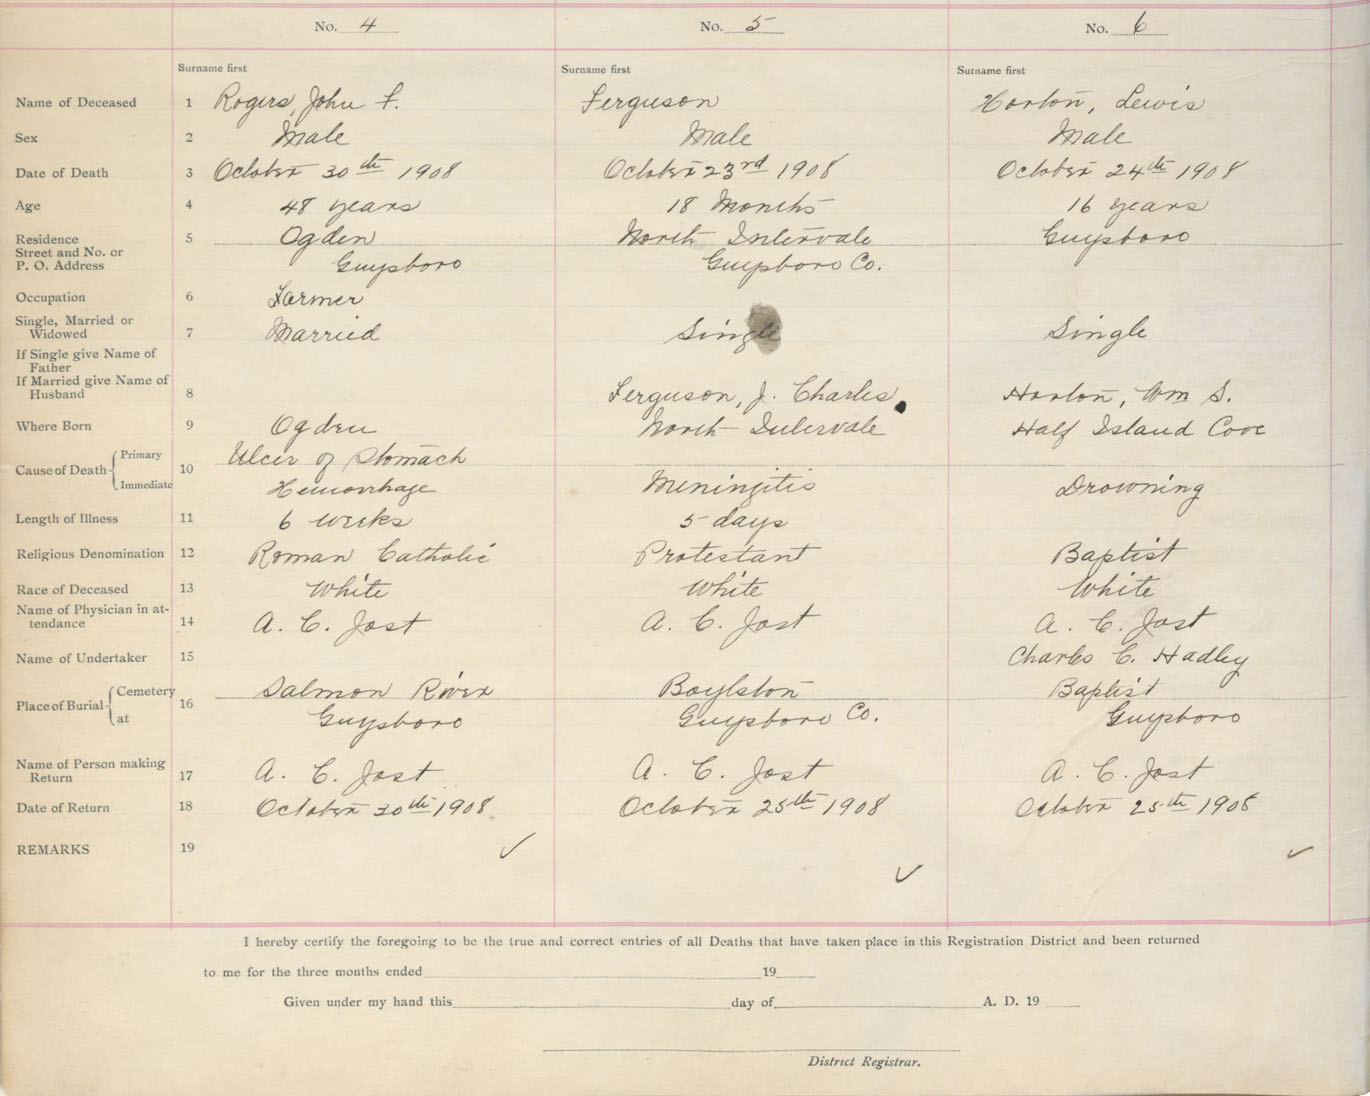 No. 4 No. 5 No. 6
Surname first Surname first Surname first
Name of Deceased 1 Rogers, John F. Ferguson Horton, Lewis
Sex 2 Male Male Male
Date of Death 3 October 30th 1908 October 23rd 1908 October 24th 1908
Age 4 48 years 18 Months 16 years
Residence 5 Ogden North Intervale Guysboro
Street and No. or
P. O. Address Guysboro Guysboro Co.
Occupation 6 Farmer
Single, Married or
Widowed 7 Married Single Single
If Single give Name of
Father
If Married give Name of
Husband 8 Ferguson, J. Charles Horton, Wm S.
Where Born 9 Ogden North Intervale Half Island Cove
Cause of Death Primary 10 Ulcer of Stomach
Immediate Hemorrhage Meningitis Drowning
Length of Illness 11 6 weeks 5 days
Religious Denomination 12 Roman Catholic Protestant Baptist
Race of Deceased 13 White White White
Name of Physician in at-
tendance 14 A. C. Jost A. C. Jost A. C. Jost
Name of Undertaker 15 Charles C. Hadley
Place of Burial Cemetery 16 Salmon River Boylston Baptist
at Guysboro Guysboro Co. Guysboro
Name of Person making
Return 17 A. C. Jost A. C. Jost A. C. Jost
Date of Return 18 October 30th 1908 October 25th 1908 October 25th 1908
REMARKS 19 ✓ ✓ ✓
I hereby certify the foregoing to be the true and correct entries of all Deaths that have taken place in this Registration District and been returned
to me for the three months ended 19
Given under my hand this day of A. D. 19
District Registrar.